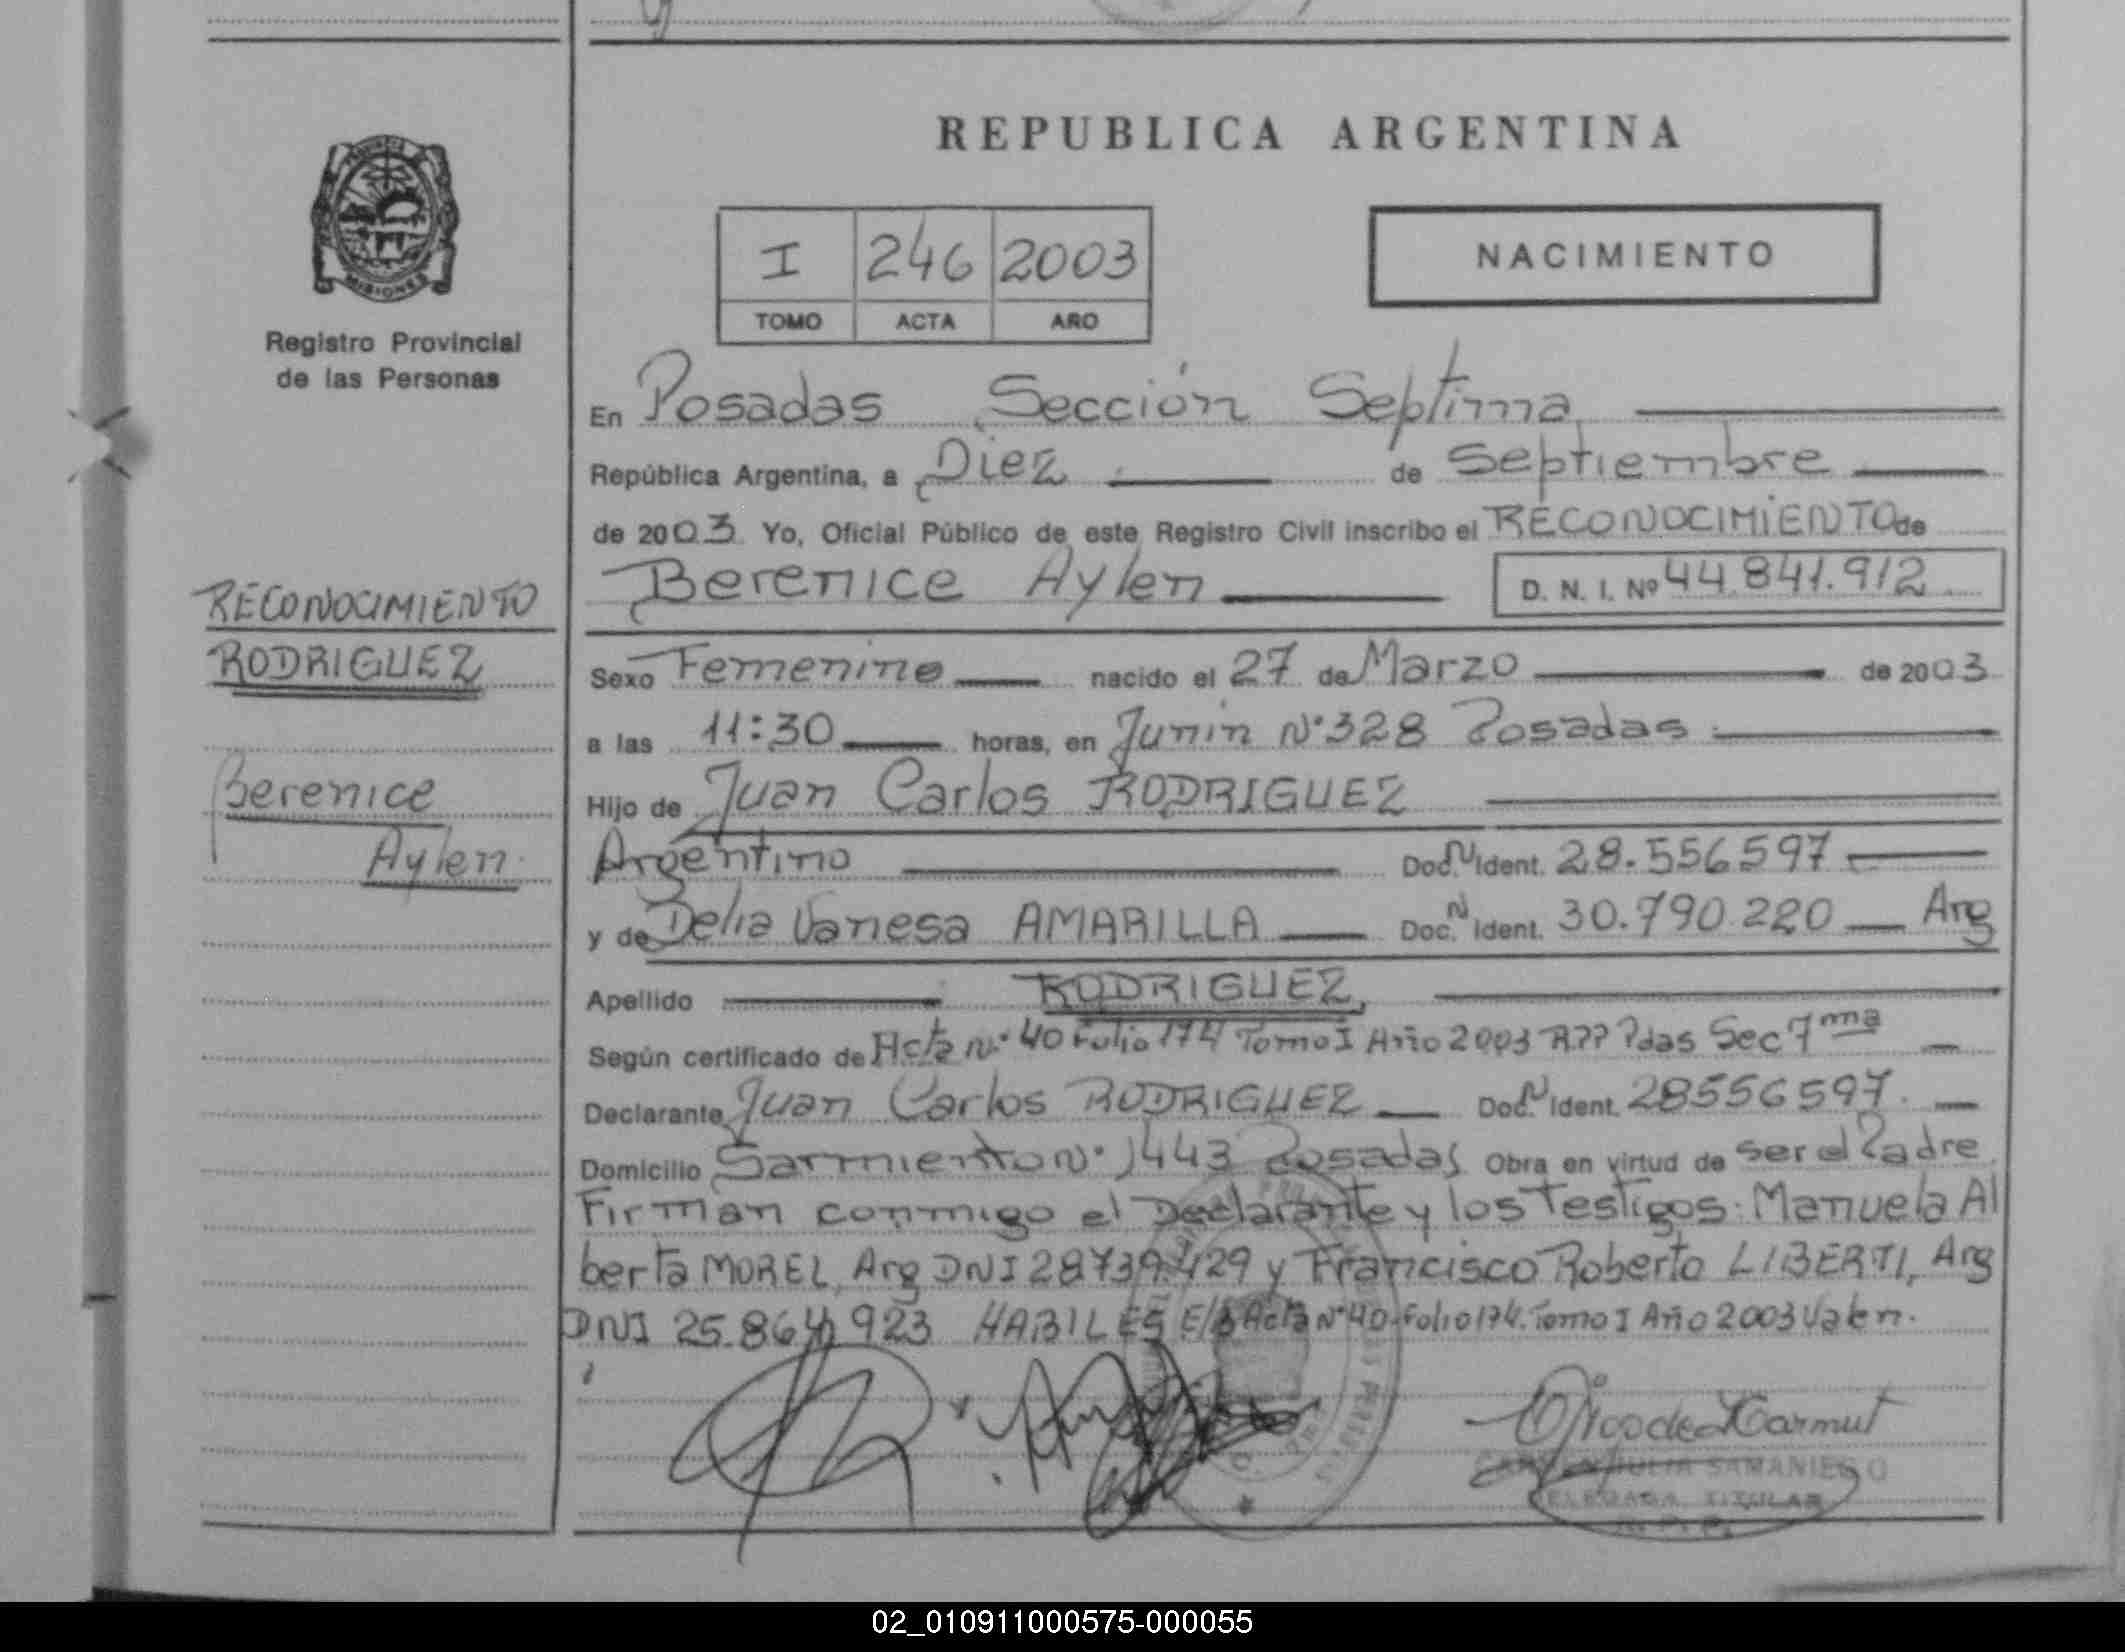 REPUBLICA ARGENTINA
MISIONES
Registro Provincial
de las Personas
I 246 2003
TOMO ACTA AÑO
NACIMIENTO
En Posadas Sección Septima
República Argentina, a Diez de Septiembre
de 2003 Yo, Oficial Público de este Registro Civil inscribo el RECONOCIMIENTO de
Berenice Aylen D. N. I. Nº 44.841.912
RECONOCIMIENTO
RODRIGUEZ
Berenice
Aylen
Sexo Femenino nacido el 27 de Marzo de 2003
a las 11:30 horas, en Junin Nº 328 Posadas
Hijo de Juan Carlos RODRIGUEZ
Argentino Doc. N Ident. 28.556597
y de Delia Vanesa AMARILLA Doc. N Ident. 30.790.220 Arg
Apellido RODRIGUEZ
Según certificado de Acta Nº 40 Folio 174 Tomo I Año 2003 Pdas Sec 7ma
Declarante Juan Carlos RODRIGUEZ Doc. N Ident. 28556597
Domicilio Sarmiento Nº 1443 Posadas Obra en virtud de ser el Padre
Firman conmigo el Declarante y los Testigos: Manuela Al
berta MOREL, Arg DNI 28739.429 y Francisco Roberto LIBERTI, Arg
DNI 25.864.923 HABILES E/ Acta Nº 40 Folio 174 Tomo I Año 2003 Valen.
CARMEN JULIA SAMANIEGO
DELEGADA TITULAR
02_010911000575-000055